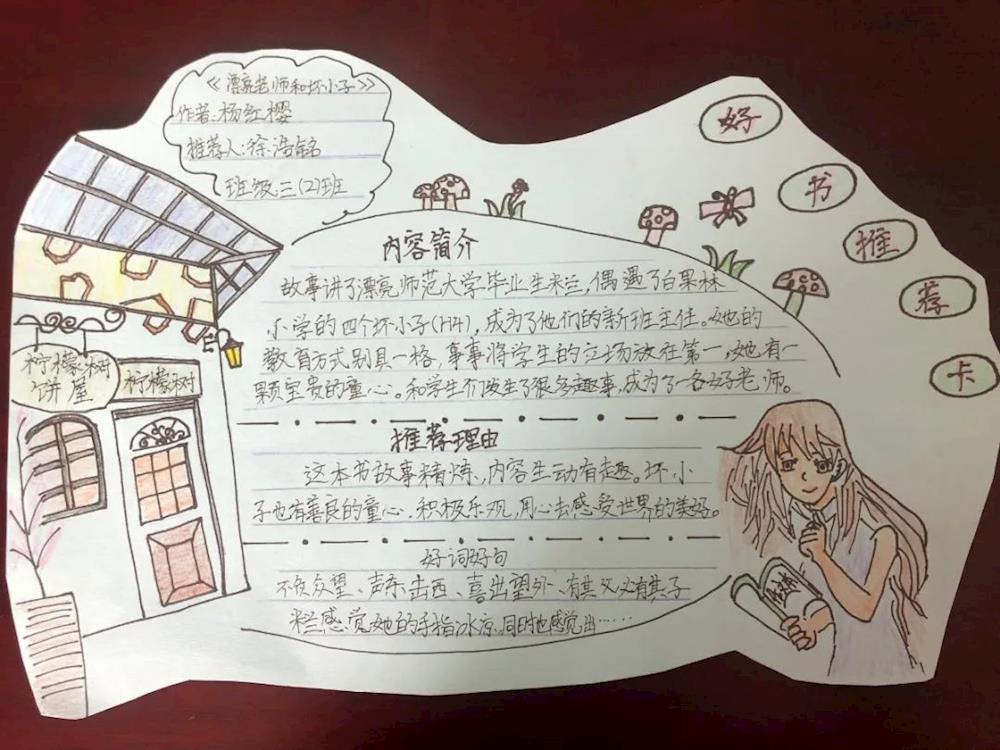 《漂亮老师和坏小子》
作者:杨红樱
推荐人:徐浩铭
班级:三(2)班
好书推荐卡
内容简介
故事讲了漂亮师范大学毕业生米兰,偶遇了白果林
小学的四个坏小子(H4),成为了他们的新班主任。她的
教育方式别具一格,事事将学生的立场放在第一,她有一
颗宝贵的童心。和学生们发生了很多趣事,成为了一名好老师。
推荐理由
这本书故事精炼,内容生动有趣。坏小
子也有善良的童心,积极乐观,用心去感受世界的美好。
好词好句
不负众望、声东击西、喜出望外、有其父必有其子
米兰感觉她的手指冰凉,同时也感觉出……
柠檬树
饼屋
柠檬树